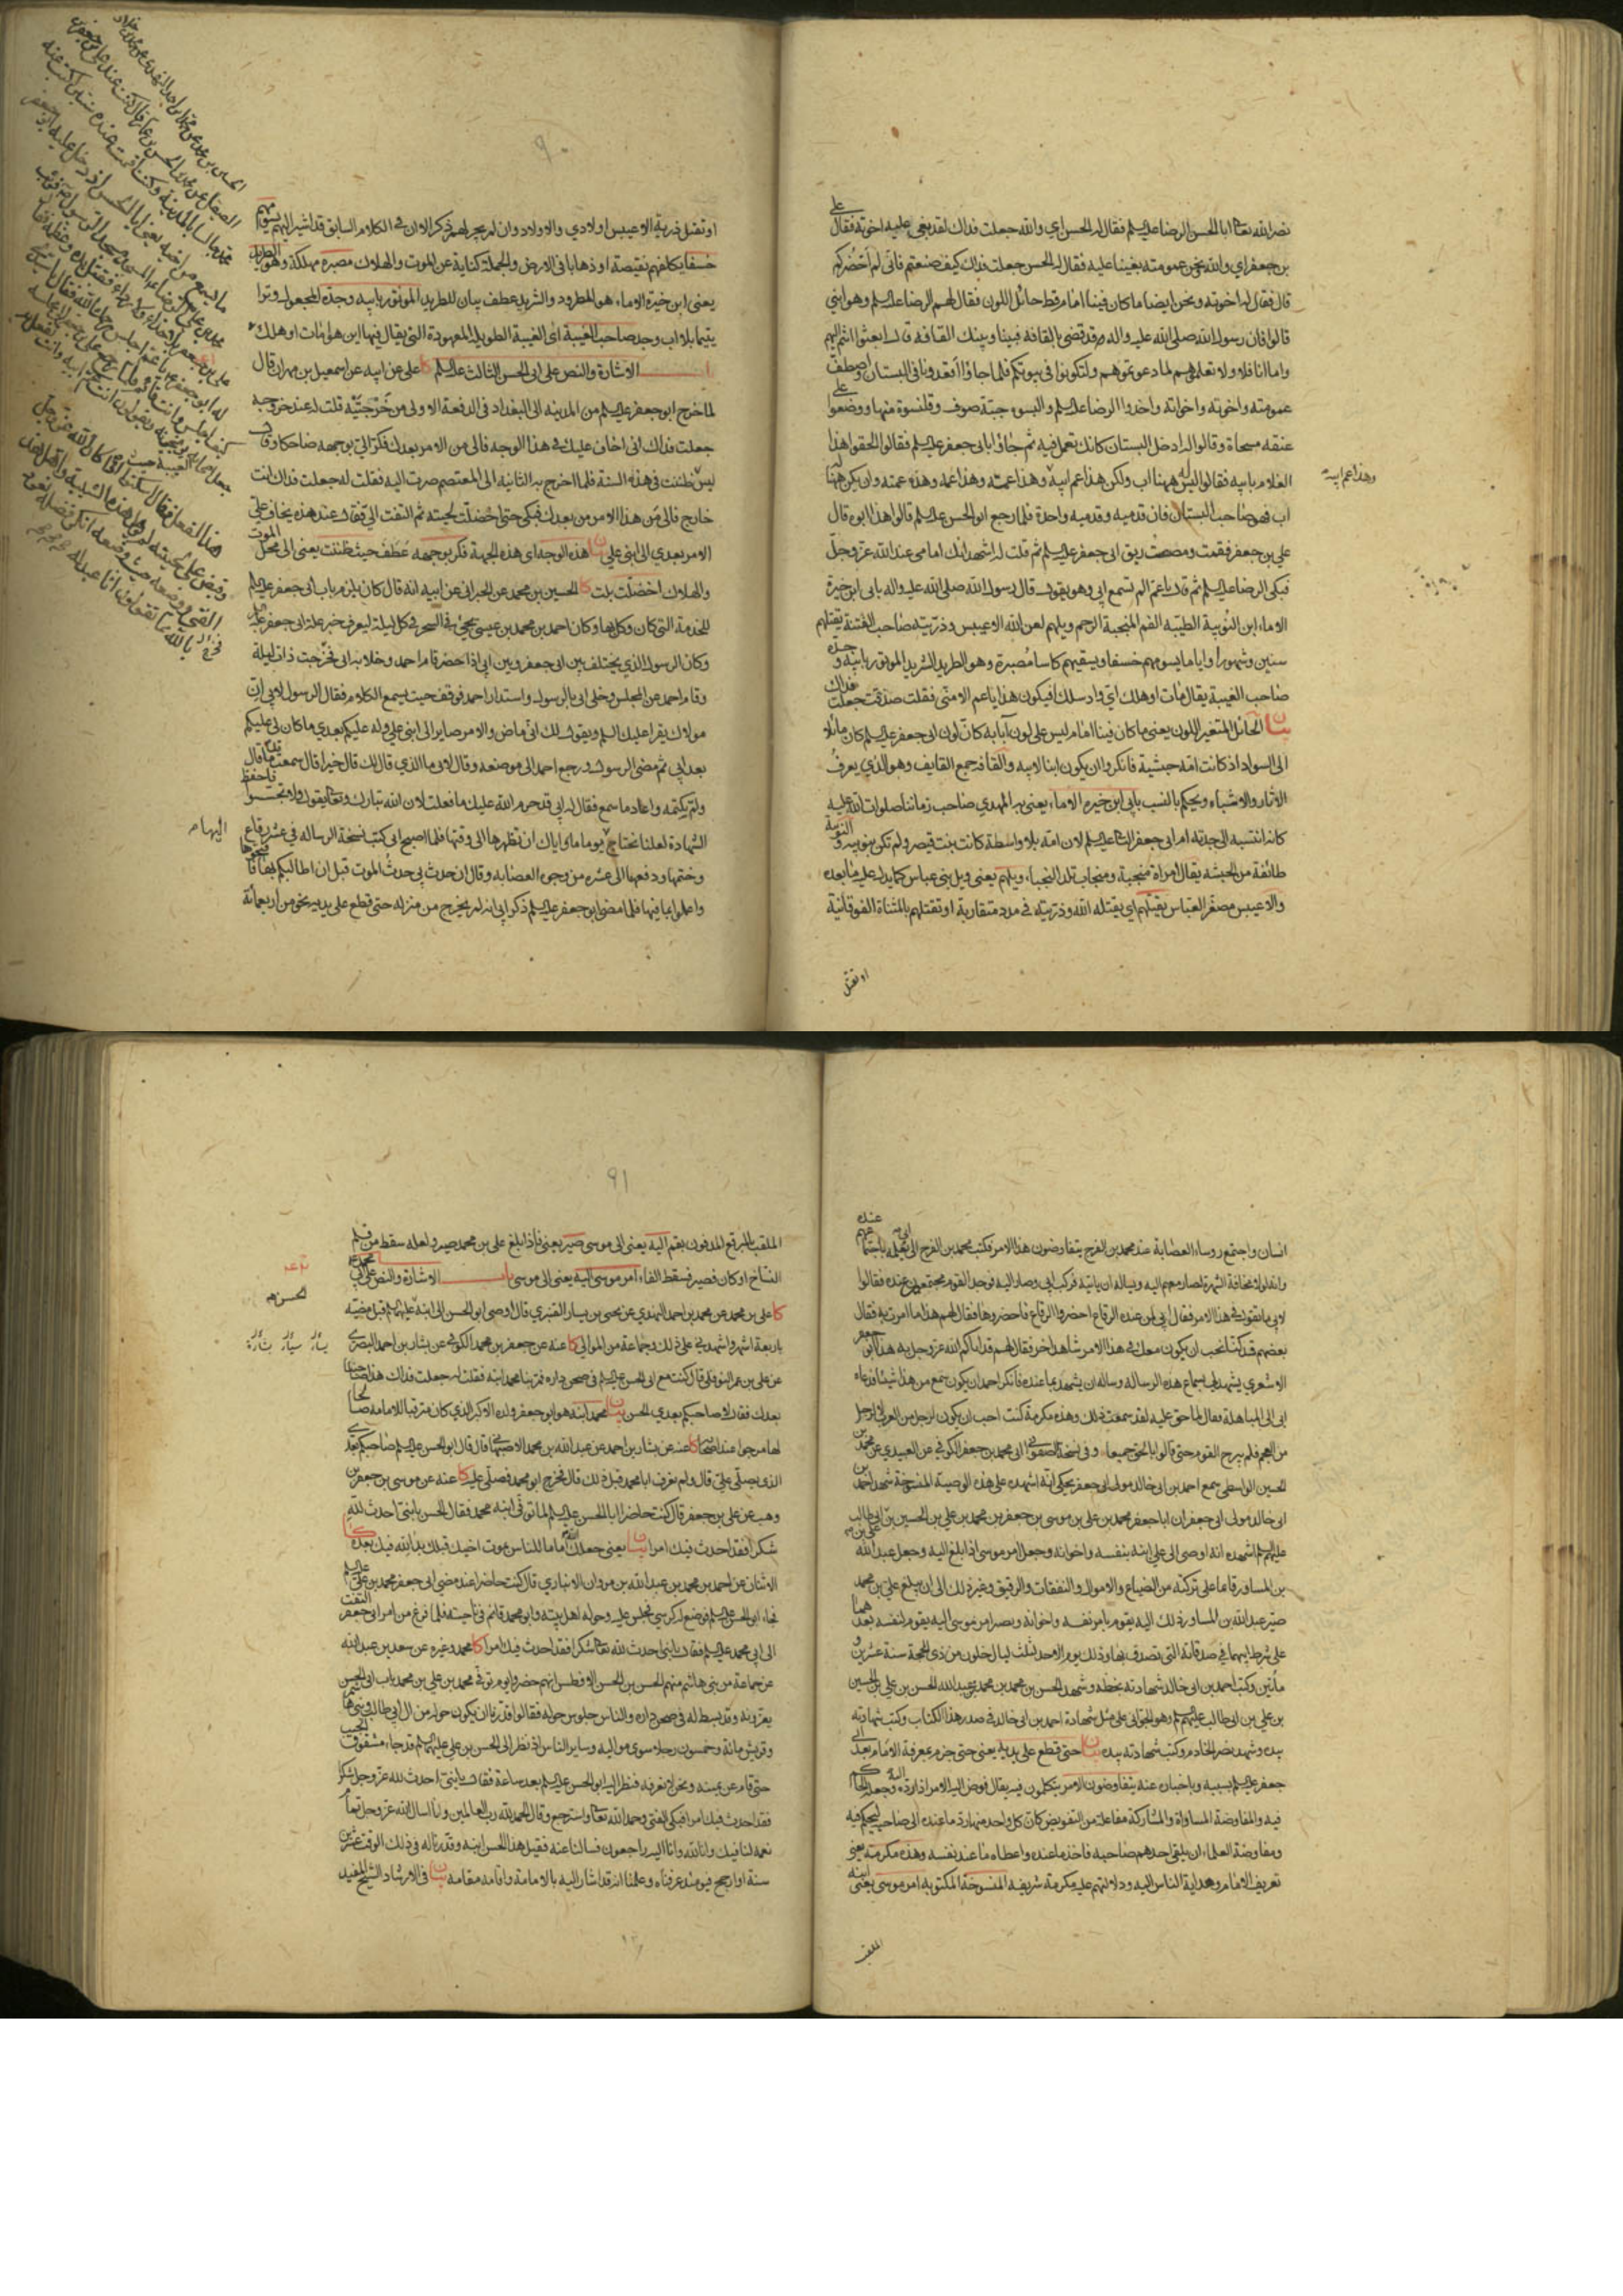 نصر الله تعالى ابا الحسن الرضا عليه السلم فقال له الحسن اي والله جعلت فداك لقد بغى عليه اخوته فقال علي
بن جعفر اي والله ونحن عمومته بغينا عليه فقال له الحسن جعلت فداك كيف صنعتم فاني لم احضركم
قال فقال له اخوته ونحن ايضا ما كان فينا امام قط حائل اللون فقال لهم الرضا عليه السلم وهو ابني
قالوا فان رسول الله صلى الله عليه واله قد قضى بالقافة فبيننا وبينك القافة قال ابعثوا انتم اليهم
واما انا فلا ولا تعلموهم لما دعوتموهم ولتكونوا في بيوتكم فلما جاؤا اقعدونا في البستان واصطف
عمومته واخوته واخواته واخذوا الرضا عليه السلم والبسوه جبة صوف وقلنسوة منها ووضعوا على
عنقه مسحاة وقالوا له ادخل البستان كانك تعمل فيه ثم جاؤا بابي جعفر عليه السلم فقالوا الحقوا هذا
الغلام بابيه فقالوا ليس له ههنا اب ولكن هذا عم ابيه وهذا عمه وهذه عمته وان يكن ههنا
وهذا عم ابيه
اب فهو صاحب البستان فان قدميه وقدميه واحدة فلما رجع ابو الحسن عليه السلم قالوا هذا ابوه قال
علي بن جعفر فقمت ومصصت ريق ابي جعفر عليه السلم ثم قلت له اشهد انك امامي عند الله عز وجل
فبكى الرضا عليه السلم ثم قال يا عم الم تسمع ابي وهو يقول قال رسول الله صلى الله عليه واله بابي ابن خيرة
الاماء ابن النوبية الطيبة الفم المنتجبة الرحم ويلهم لعن الله الاعيبس وذريته صاحب الفتنة يقتلهم
سنين وشهورا واياما يسومهم خسفا ويسقيهم كاسا مصبرة وهو الطريد الشريد الموتور بابيه وجده
صاحب الغيبة يقال مات او هلك اي واد سلك افيكون هذا يا عم الا مني فقلت صدقت جعلت فداك
بيان الحائل المتغير اللون يعني ما كان فينا امام ليس على لون آبائه كان لون ابي جعفر عليه السلم كان مائلا
الى السواد اذ كانت امه حبشية فانكروا ان يكون ابنا لابيه والقافة جمع القايف وهو الذي يعرف
الآثار والاشباه ويحكم بالنسب بابي ابن خيرة الاماء يعني به المهدي صاحب زماننا صلوات الله عليه
كانه انتسبه الى جدته ام ابي جعفر الثاني عليه السلم لان امه بلا واسطة كانت بنت قيصر ولم تكن نوبية والنوبة
طائفة من الحبشة يقال امراة منجبة ومنجاب تلد النجباء ويلهم يعني ويل بني عباس كما يدل عليه ما بعده
والاعيبس مصغر العباس يقتلهم اي يقتله الله وذريته في مدد متقاربة او تقتلهم بالمثناة الفوقانية
او تقتل
٩٠
او تقتل ذرية الاعيبس اولادي والاولاد وان لم يجر لهم ذكر الا ان في الكلام السابق قد اشير اليهم يسومهم
خسفا يكلفهم نقيصة او ذهابا في الارض والجملة كناية عن الموت والهلاك مصبره مهلكة وهو الطريد
يعني ابن خيرة الاماء هو المطرود والشريد عطف بيان للطريد الموتور بابيه وجده المجعول وترا
يتيما بلا اب وجد صاحب الغيبة اي الغيبة الطويلة المعهودة التي يقال فيها ابن هو مات او هلك
الاشارة والنص على ابي الحسن الثالث عليه السلم كا علي عن ابيه عن اسمعيل بن مهران قال
لما خرج ابو جعفر عليه السلم من المدينة الى البغداد في الدفعة الاولى من خرجتيه قلت له عند خروجه
جعلت فداك اني اخاف عليك في هذا الوجه فالى من الامر بعدك فكر الي بوجهه ضاحكا وقال
ليس ظننت في هذه السنة فلما اخرج به الثانية الى المعتصم صرت اليه فقلت له جعلت فداك انت
خارج فالى من هذا الامر من بعدك فبكى حتى اخضلت لحيته ثم التفت الي فقال عند هذه يخاف علي
الامر بعدي الى ابني علي بيان هذه الوجه اي هذه الجهة فكر بوجهه عطف حيث ظننت يعني الى محل الموت
والهلاك اخضلت بلت كا الحسين بن محمد عن الخيراني عن ابيه انه قال كان يلزم باب ابي جعفر عليه السلم
للخدمة التي كان وكل بها وكان احمد بن محمد بن عيسى يجيئ في السحر في كل ليلة ليعرف خبر علة ابي جعفر عليه السلم
وكان الرسول الذي يختلف بين ابي جعفر وبين ابي اذا حضر قام احمد وخلا به ابي فخرجت ذات ليلة
وقام احمد عن المجلس وخلى ابي بالرسول واستدار احمد فوقف حيث يسمع الكلام فقال الرسول لابي ان
مولاك يقرا عليك السلم ويقول لك اني ماض والامر صاير الى ابني علي وله عليكم بعدي ما كان لي عليكم
بعد ابي ثم مضى الرسول ورجع احمد الى موضعه وقال لابي ما الذي قال لك قال خيرا قال سمعت ما قال
ولم يكتمه واعاد ما سمع فقال له ابي قد حرم الله عليك ما فعلت لان الله تبارك وتعالى يقول ولا تجسسوا فاحفظ
الشهادة لعلنا نحتاج يوما ما واياك ان تظهرها الى وقتها فلما اصبح ابي كتب نسخة الرساله في عشر رقاع
اليها م
وختمها ودفعها الى عشره من وجوه العصابه وقال ان حدث بي حدث الموت قبل ان اطالبكم بها فافتحوها
واعلموا بما فيها فلما مضى ابو جعفر عليه السلم ذكر ابي انه لم يخرج من منزله حتى قطع على يديه نحو من اربعمائة
انسان واجتمع روساء العصابة عند محمد بن الفرج يتفاوضون هذا الامر فكتب محمد بن الفرج الى ابي يعلمه باجتماعهم عنده
وانه لولا مخافة الشهرة لصار معهم اليه ويساله ان ياتيه فركب ابي وصار اليه فوجد القوم مجتمعين عنده فقالوا
لابي ما تقول في هذا الامر فقال ابي لمن عنده الرقاع احضروا الرقاع فاحضروها فقال لهم هذا ما امرت به فقال
بعضهم قد كنا نحب ان يكون معك في هذا الامر شاهد اخر فقال لهم قد اتاكم الله عز وجل به هذا ابو جعفر
الاشعري يشهد لي بسماع هذه الرسالة وساله ان يشهد بما عنده فانكر احمد ان يكون سمع من هذا شيئا فدعاه
ابي الى المباهلة فقال لما حق عليه لقد سمعت ذلك وهذه مكرمة كنت احب ان يكون لرجل من العرب لا لرجل
من العجم فلم يبرح القوم حتى قالوا بالحق جميعا وفي نسخة الصفواني ابي محمد بن جعفر الكوفي عن العبيدي عن محمد بن
الحسين الواسطي سمع احمد بن ابي خالد مولى ابي جعفر يحكي انه اشهده على هذه الوصية المنسوخة شهد احمد بن
ابي خالد مولى ابي جعفر ان ابا جعفر محمد بن علي بن موسى بن جعفر بن محمد بن علي بن الحسين بن علي بن ابي طالب
عليهم السلم اشهده انه اوصى الى علي ابنه بنفسه واخوانه وجعل امر موسى اذا بلغ اليه وجعل عبد الله
بن المساور قائما على تركته من الضياع والاموال والنفقات والرقيق وغير ذلك الى ان يبلغ علي بن محمد
صير عبد الله بن المساور ذلك اليه يقوم بامر نفسه واخوانه ويصير امر موسى اليه يقوم لنفسه بعدهما
على شرط ابيهما في صدقاته التي تصدق بها وذلك يوم الاحد لثلث ليال خلون من ذي الحجة سنة عشرين و
مائتين وكتب احمد بن ابي خالد شهادته بخطه وشهد الحسن بن محمد بن محمد بن عبد الله الحسن بن علي بن الحسين
بن علي بن ابي طالب عليهم السلم وهو الجواني على مثل شهادة احمد بن ابي خالد في صدر هذا الكتاب وكتب شهادته
بيده وشهد نصر الخادم وكتب شهادته بيده بيان حتى قطع على يديه يعني حتى جزم بمعرفة الامام بعد ابي
جعفر عليه السلم بسببه وباخباره عنه يتفاوضون الامر يتكلمون فيه يقال فوض اليه الامر اذا رده اليه وجعله الحاكم
فيه والمفاوضة المساواة والمشاركة مفاعلة من التفويض كان كل واحد منهما رد ما عنده الى صاحبه ليحكم فيه
ومفاوضة العلماء ان يلقى احدهم صاحبه فاخذ ما عنده واعطاه ما عند نفسه وهذه مكرمة يعني
تعريف الامام وهداية الناس اليه ودلالتهم عليه مكرمة شريفة المنسوخة المكتوبة امر موسى يعني ابنه
الملقب
٩١
الملقب بالمبرقع المدفون بقم اليه يعني الى موسى صير يعني فاذا بلغ علي بن محمد صير ولعله سقط من قلم
النساخ او كان فصير فسقط الفاء امر موسى اليه يعني الى موسى باب الاشارة والنص على ابي محمد
الحسن م
كا علي بن محمد عن محمد بن احمد النهدي عن يحيى بن يسار القنبري قال اوصى ابو الحسن الى ابنه عليهما السلم قبل مضيه
باربعة اشهر واشهدني على ذلك وجماعة من الموالي كا عنه عن جعفر بن محمد الكوفي عن بشار بن احمد البصري
عن علي بن عمر النوفلي قال كنت مع ابي الحسن عليه السلم في صحن داره فمر بنا محمد ابنه فقلت له جعلت فداك هذا صاحبنا
بعدك فقال لا صاحبكم بعدي الحسن بيان محمد ابنه هو ابو جعفر ولده الاكبر الذي كان مترقبا للامامة صالحا
لها مرجوا عند اصحابنا كا عنه عن بشار بن احمد عن عبد الله بن محمد الاصبهاني قال قال ابو الحسن عليه السلم صاحبكم بعدي
الذي يصلي علي قال ولم نعرف ابا محمد قبل ذلك قال فخرج ابو محمد فصلى عليه كا عنه عن موسى بن جعفر بن
وهب عن علي بن جعفر قال كنت حاضرا ابا الحسن عليه السلم لما توفى ابنه محمد فقال للحسن يا بني احدث لله
شكرا فقد احدث فيك امرا بيان يعني جعلك الله اماما للناس بموت اخيك قبلك بدا لله فيك بعده كا
الاثنان عن احمد بن محمد بن عبد الله بن مروان الانباري قال كنت حاضرا عند مضي ابي جعفر محمد بن علي عليه السلم
فجاء ابو الحسن عليه السلم فوضع له كرسي فجلس عليه وحوله اهل بيته وابو محمد قائم في ناحية فلما فرغ من امر ابي جعفر التفت
الى ابي محمد عليه السلم فقال يا بني احدث لله تعالى شكرا فقد احدث فيك امرا كا محمد وغيره عن سعد بن عبد الله
عن جماعة من بني هاشم منهم الحسن بن الحسن الافطس انهم حضروا يوم توفي محمد بن علي بن محمد باب ابي الحسن
يعزونه وقد بسط له في صحن داره والناس جلوس حوله فقالوا قدرنا ان يكون حوله من ال ابي طالب وبني هاشم
وقريش مائة وخمسون رجلا سوى مواليه وساير الناس اذ نظر الى الحسن بن علي عليهما السلم قد جاء مشقوق الجيب
حتى قام عن يمينه ونحن لا نعرفه فنظر اليه ابو الحسن عليه السلم بعد ساعة فقال يا بني احدث لله عز وجل شكرا
فقد احدث فيك امرا فبكى الفتى وحمد الله تعالى واسترجع وقال الحمد لله رب العالمين وانا اسال الله عز وجل تمام
نعمه لنا فيك وانا لله وانا اليه راجعون فسالنا عنه فقيل هذا الحسن ابنه وقدرنا له في ذلك الوقت عشرين
سنة او ارجح فيومئذ عرفناه وعلمنا انه قد اشار اليه بالامامة واقامه مقامه بيان في الارشاد الشيخ المفيد